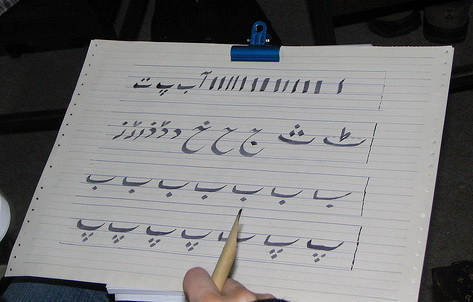 ا ا ا ا ا ا ا ا ا ا ا ا آ ب پ ت
ٹ ث ج ح خ د ڈ ذ ر ڑ ز
ب ب ب ب ب ب ب
پ پ پ پ پ پ پ